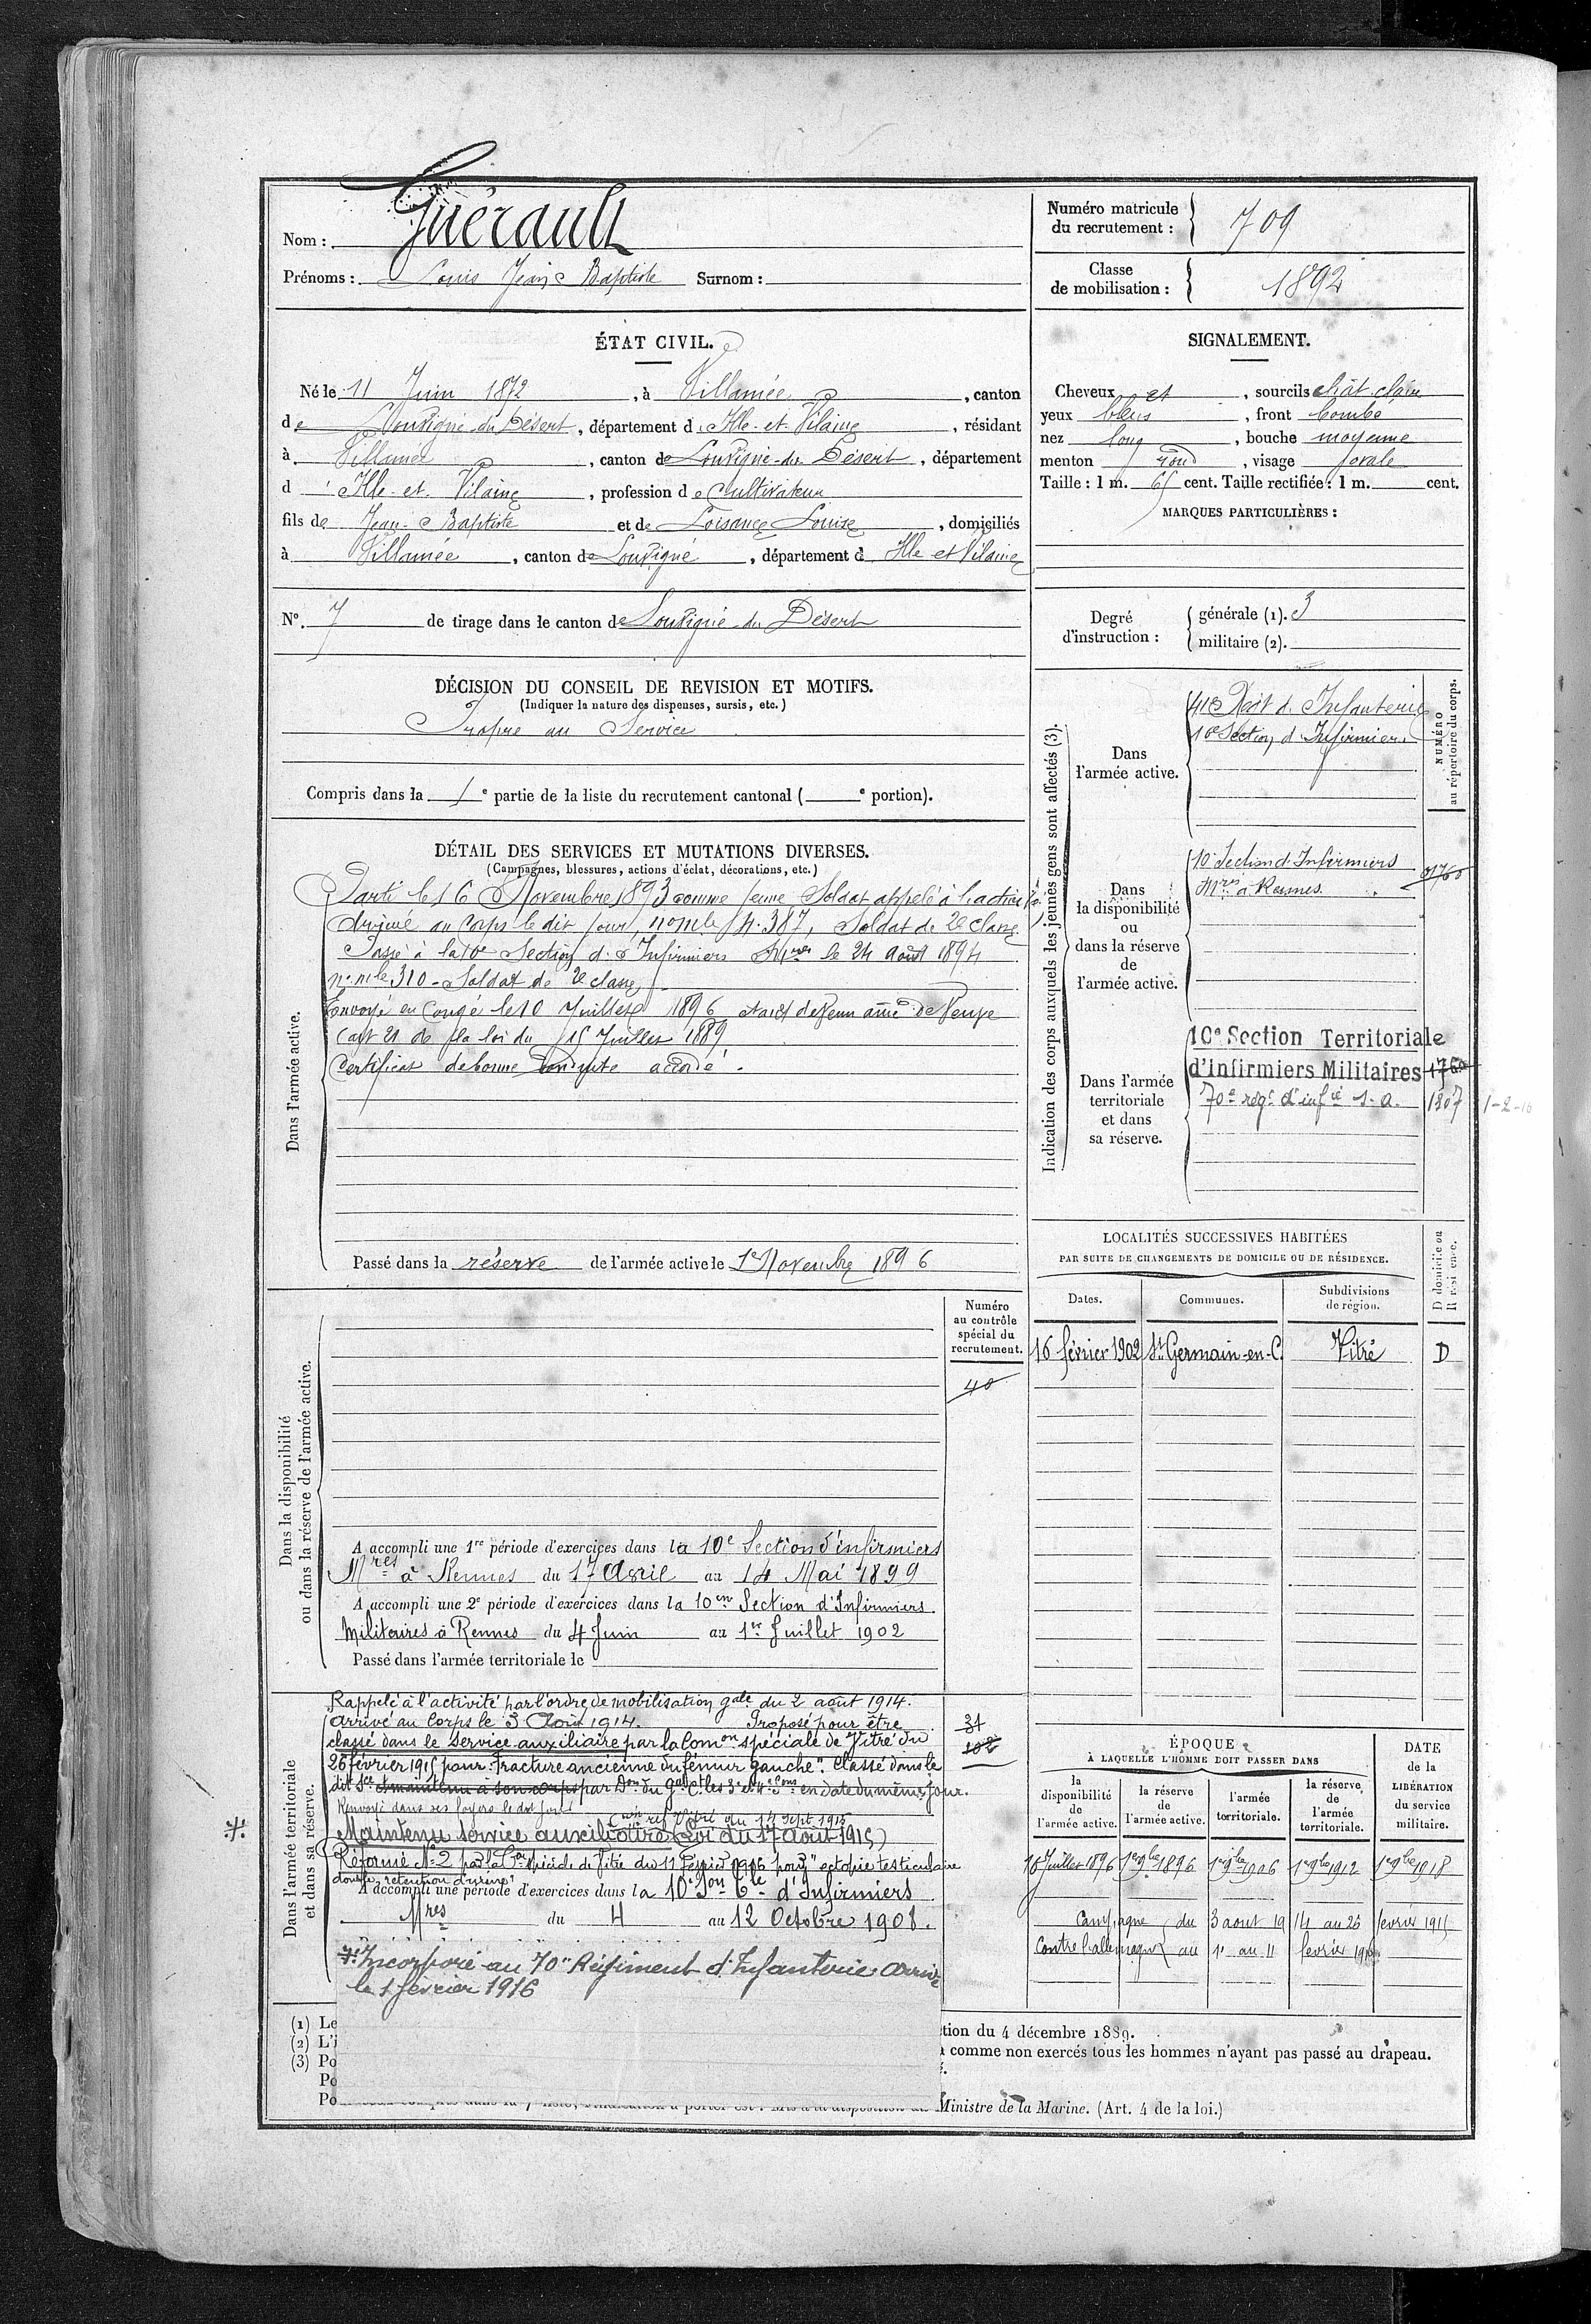 Nom : Guérault
Prénoms : Louis Jean Baptiste Surnom :
Numéro matricule
du recrutement : 709
Classe
de mobilisation : 1892
ÉTAT CIVIL.
Né le 11 Juin 1872, à Villamée, canton
de Louvigné du Désert, département d'Ille-et-Vilaine, résidant
à Villamée, canton de Louvigné-du-Désert, département
d'Ille-et-Vilaine, profession de Cultivateur
fils de Jean-Baptiste et de Loisance Louise, domiciliés
à Villamée, canton de Louvigné, département d Ille et Vilaine
N°. 7 de tirage dans le canton de Louvigné du Désert
DÉCISION DU CONSEIL DE REVISION ET MOTIFS.
(Indiquer la nature des dispenses, sursis, etc.)
Propre au Service
Compris dans la 1e partie de la liste du recrutement cantonal ( e portion).
SIGNALEMENT.
Cheveux et, sourcils chât clair
yeux bleus, front bombé
nez long, bouche moyenne
menton rond, visage ovale
Taille : 1 m. 65 cent. Taille rectifiée : 1 m. cent.
MARQUES PARTICULIÈRES :
Degré
d'instruction :
générale (1). 3
militaire (2).
DÉTAIL DES SERVICES ET MUTATIONS DIVERSES.
(Campagnes, blessures, actions d'éclat, décorations, etc.)
Dans l'armée active.
Parti le 16 Novembre 1893 comme jeune Soldat appelé à l'activité
Arrivé au Corps le dit jour, no mle 4.387, Soldat de 2e Classe
Passé à la 10e Section d'Infirmiers Mres le 24 Août 1894
no mle 310 - Soldat de 2e classe
Envoyé en Congé le 10 Juillet 1896 étant devenu aîné de Veuve
(art 21 de la loi du 15 Juillet 1889
Certificat de bonne Conduite accordé.
Passé dans la réserve de l'armée active le 1er Novembre 1896
Indication des corps auxquels les jeunes gens sont affectés (3).
NUMÉRO
au répertoire du corps.
Dans
l'armée active.
41e Régt d'Infanterie
10e Section d'Infirmiers
Dans
la disponibilité
ou
dans la réserve
de
l'armée active.
10 Section d'Infirmiers
Mres à Rennes.
Dans l'armée
territoriale
et dans
sa réserve.
10e Section Territoriale
d'Infirmiers Militaires
70e régt d'infie s.a. 1307 1-2-16
LOCALITÉS SUCCESSIVES HABITÉES
PAR SUITE DE CHANGEMENTS DE DOMICILE OU DE RÉSIDENCE.
Dates. Communes. Subdivisions
de région.
D domicile ou
R résidence.
16 février 1902 St Germain-en-C. Vitré D
Dans la disponibilité
ou dans la réserve de l'armée active.
Numéro
au contrôle
spécial du
recrutement.
40
A accompli une 1re période d'exercices dans la 10e Section d'infirmiers
Mres à Rennes du 17 Avril au 14 Mai 1899
A accompli une 2e période d'exercices dans la 10me Section d'Infirmiers
Militaires à Rennes du 4 Juin au 1er Juillet 1902
Passé dans l'armée territoriale le
Dans l'armée territoriale
et dans sa réserve.
Rappelé à l'activité par l'ordre de mobilisation gale du 2 août 1914.
arrivé au Corps le 3 Août 1914. Proposé pour être
classé dans le service auxiliaire par la Comon spéciale de Vitré du
26 février 1915 pour "Fracture ancienne du fémur gauche". Classé dans le
dit Sce et maintenu à son corps par Don du Gal Ct les 3e et 4e Sons en date du même jour.
Renvoyé dans ses foyers le dit jour
Maintenu service auxiliaire (Con ref Vitré du 14 Sept 1915
(Loi du 17 Août 1915)
Réformé No 2 par la Con spéciale de Vitré du 11 Février 1916 pour "ectopie testiculaire
double, rétention d'urine"
A accompli une période d'exercices dans la 10e Son Tle d'Infirmiers
Mres du 4 au 12 Octobre 1908.
*. Incorporé au 70e Régiment d'Infanterie arrivé
le 1 février 1916
*.
31
102
ÉPOQUE
À LAQUELLE L'HOMME DOIT PASSER DANS
DATE
de la
LIBÉRATION
du service
militaire.
la
disponibilité
de
l'armée active.
la réserve
de
l'armée active.
l'armée
territoriale.
la réserve
de
l'armée
territoriale.
10 Juillet 1896 1er 9bre 1896 1er 9bre 1906 1er 9bre 1912 1er 9bre 1918
Campagne du 3 aout 1914 au 26 février 1915
Contre l'allemagne au 1 au 11 fevrier 1916
(1) Le
(2) L'i
(3) Po
Po
Po
ction du 4 décembre 1889.
à comme non exercés tous les hommes n'ayant pas passé au drapeau.
Ministre de la Marine. (Art. 4 de la loi.)